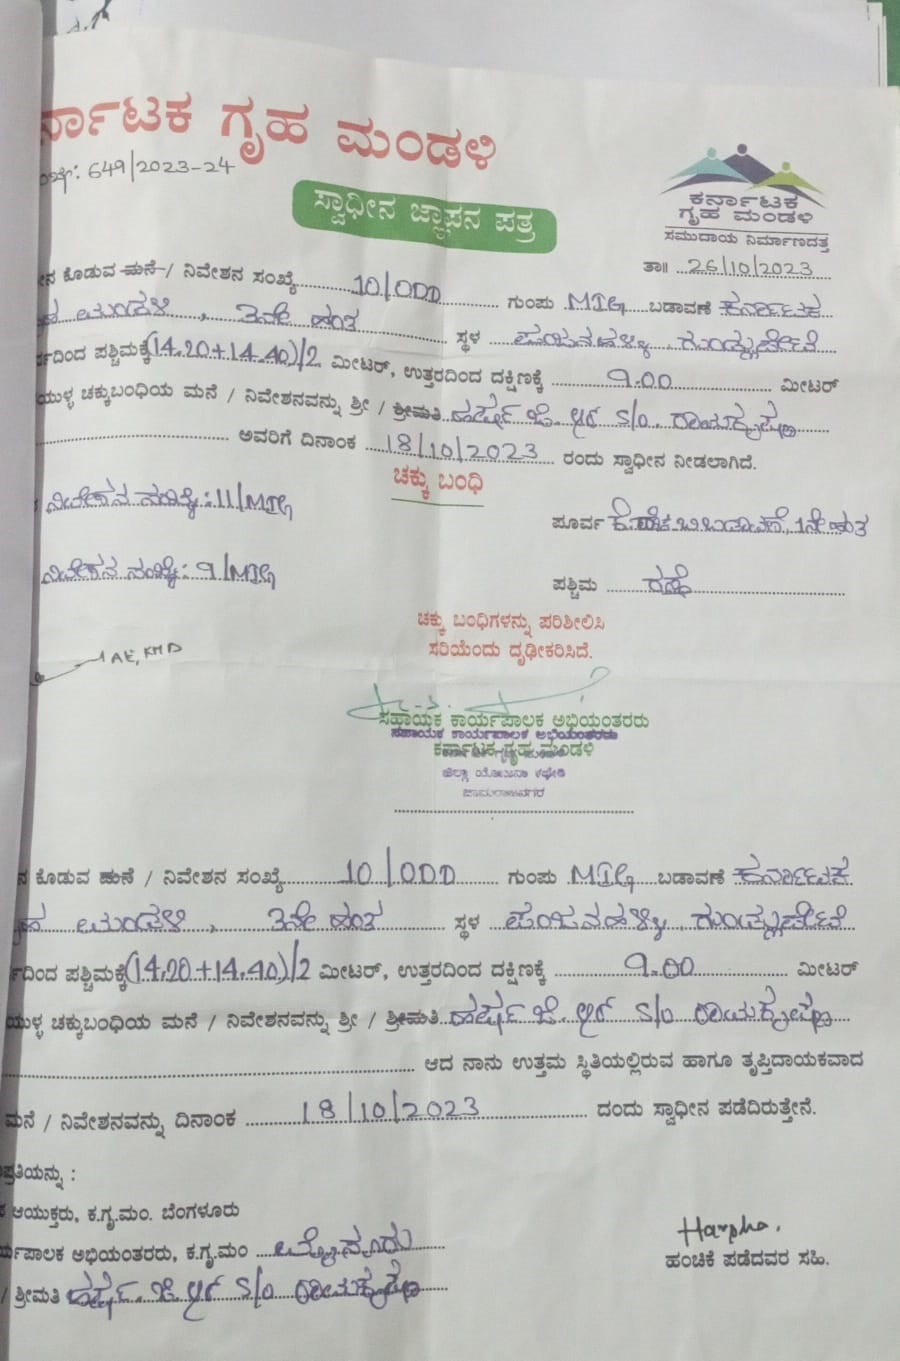 ರ್ನಾಟಕ ಗೃಹ ಮಂಡಳಿ
649/2023-24
ಸ್ವಾಧೀನ ಜ್ಞಾಪನ ಪತ್ರ
ಕರ್ನಾಟಕ
ಗೃಹ ಮಂಡಳಿ
ಸಮುದಾಯ ನಿರ್ಮಾಣದತ್ತ
ತಾ॥ 26/10/2023
ನ ಕೊಡುವ ಮನೆ / ನಿವೇಶನ ಸಂಖ್ಯೆ 10/ODD ಗುಂಪು MIG ಬಡಾವಣೆ ಕರ್ನಾಟಕ
ಹ ಮಂಡಳಿ, 3ನೇ ಹಂತ ಸ್ಥಳ ಪಂಜನಹಳ್ಳಿ, ಗುಂಡ್ಲುಪೇಟೆ
ರ್ವದಿಂದ ಪಶ್ಚಿಮಕ್ಕೆ (14.20+14.40)/2 ಮೀಟರ್, ಉತ್ತರದಿಂದ ದಕ್ಷಿಣಕ್ಕೆ 9.00 ಮೀಟರ್
ಯುಳ್ಳ ಚಕ್ಕುಬಂಧಿಯ ಮನೆ / ನಿವೇಶನವನ್ನು ಶ್ರೀ / ಶ್ರೀಮತಿ ಹರ್ಷ ಜಿ. ಆರ್ S/o. ರಾಮಕೃಷ್ಣ
ಅವರಿಗೆ ದಿನಾಂಕ 18/10/2023 ರಂದು ಸ್ವಾಧೀನ ನೀಡಲಾಗಿದೆ.
ಚಕ್ಕು ಬಂಧಿ
ನಿವೇಶನ ಸಂಖ್ಯೆ: 11/MIG
ಪೂರ್ವ ಬಡಾವಣೆ, 1ನೇ ಹಂತ
ನಿವೇಶನ ಸಂಖ್ಯೆ: 9/MIG
ಪಶ್ಚಿಮ ರಸ್ತೆ
ಚಕ್ಕು ಬಂಧಿಗಳನ್ನು ಪರಿಶೀಲಿಸಿ
ಸರಿಯೆಂದು ದೃಢೀಕರಿಸಿದೆ.
AE, KHB
ಸಹಾಯಕ ಕಾರ್ಯಪಾಲಕ ಅಭಿಯಂತರರು
ಸಹಾಯಕ ಕಾರ್ಯಪಾಲಕ ಅಭಿಯಂತರರು
ಕರ್ನಾಟಕ ಗೃಹ ಮಂಡಳಿ
ಜಿಲ್ಲಾ ಯೋಜನಾ ಕಛೇರಿ
ಚಾಮರಾಜನಗರ
ನ ಕೊಡುವ ಮನೆ / ನಿವೇಶನ ಸಂಖ್ಯೆ 10/ODD ಗುಂಪು MIG ಬಡಾವಣೆ ಕರ್ನಾಟಕ
ಗೃಹ ಮಂಡಳಿ, 3ನೇ ಹಂತ ಸ್ಥಳ ಪಂಜನಹಳ್ಳಿ, ಗುಂಡ್ಲುಪೇಟೆ
ರ್ವದಿಂದ ಪಶ್ಚಿಮಕ್ಕೆ (14.20+14.40)/2 ಮೀಟರ್, ಉತ್ತರದಿಂದ ದಕ್ಷಿಣಕ್ಕೆ 9.00 ಮೀಟರ್
ಯುಳ್ಳ ಚಕ್ಕುಬಂಧಿಯ ಮನೆ / ನಿವೇಶನವನ್ನು ಶ್ರೀ / ಶ್ರೀಮತಿ ಹರ್ಷ ಜಿ. ಆರ್ S/o ರಾಮಕೃಷ್ಣ
ಆದ ನಾನು ಉತ್ತಮ ಸ್ಥಿತಿಯಲ್ಲಿರುವ ಹಾಗೂ ತೃಪ್ತಿದಾಯಕವಾದ
ಮನೆ / ನಿವೇಶನವನ್ನು ದಿನಾಂಕ 18/10/2023 ದಂದು ಸ್ವಾಧೀನ ಪಡೆದಿರುತ್ತೇನೆ.
ಪ್ರತಿಯನ್ನು :
ಆಯುಕ್ತರು, ಕ.ಗೃ.ಮಂ. ಬೆಂಗಳೂರು
ರ್ಯಪಾಲಕ ಅಭಿಯಂತರರು, ಕ.ಗೃ.ಮಂ ಮೈಸೂರು
/ ಶ್ರೀಮತಿ ಹರ್ಷ. ಜಿ. ಆರ್ S/o ರಾಮಕೃಷ್ಣ
Harsha.
ಹಂಚಿಕೆ ಪಡೆದವರ ಸಹಿ.